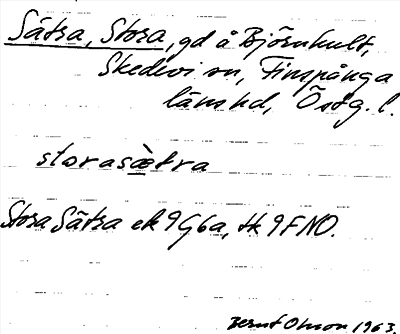 Sätra, Stora, gd å Björnhult,
Skedevi sn, Finspånga
länshd, Östg. l.
storasætra
Stora Sätra ek 9G6a, tk 9FNO.
Bernt Olsson 1963.